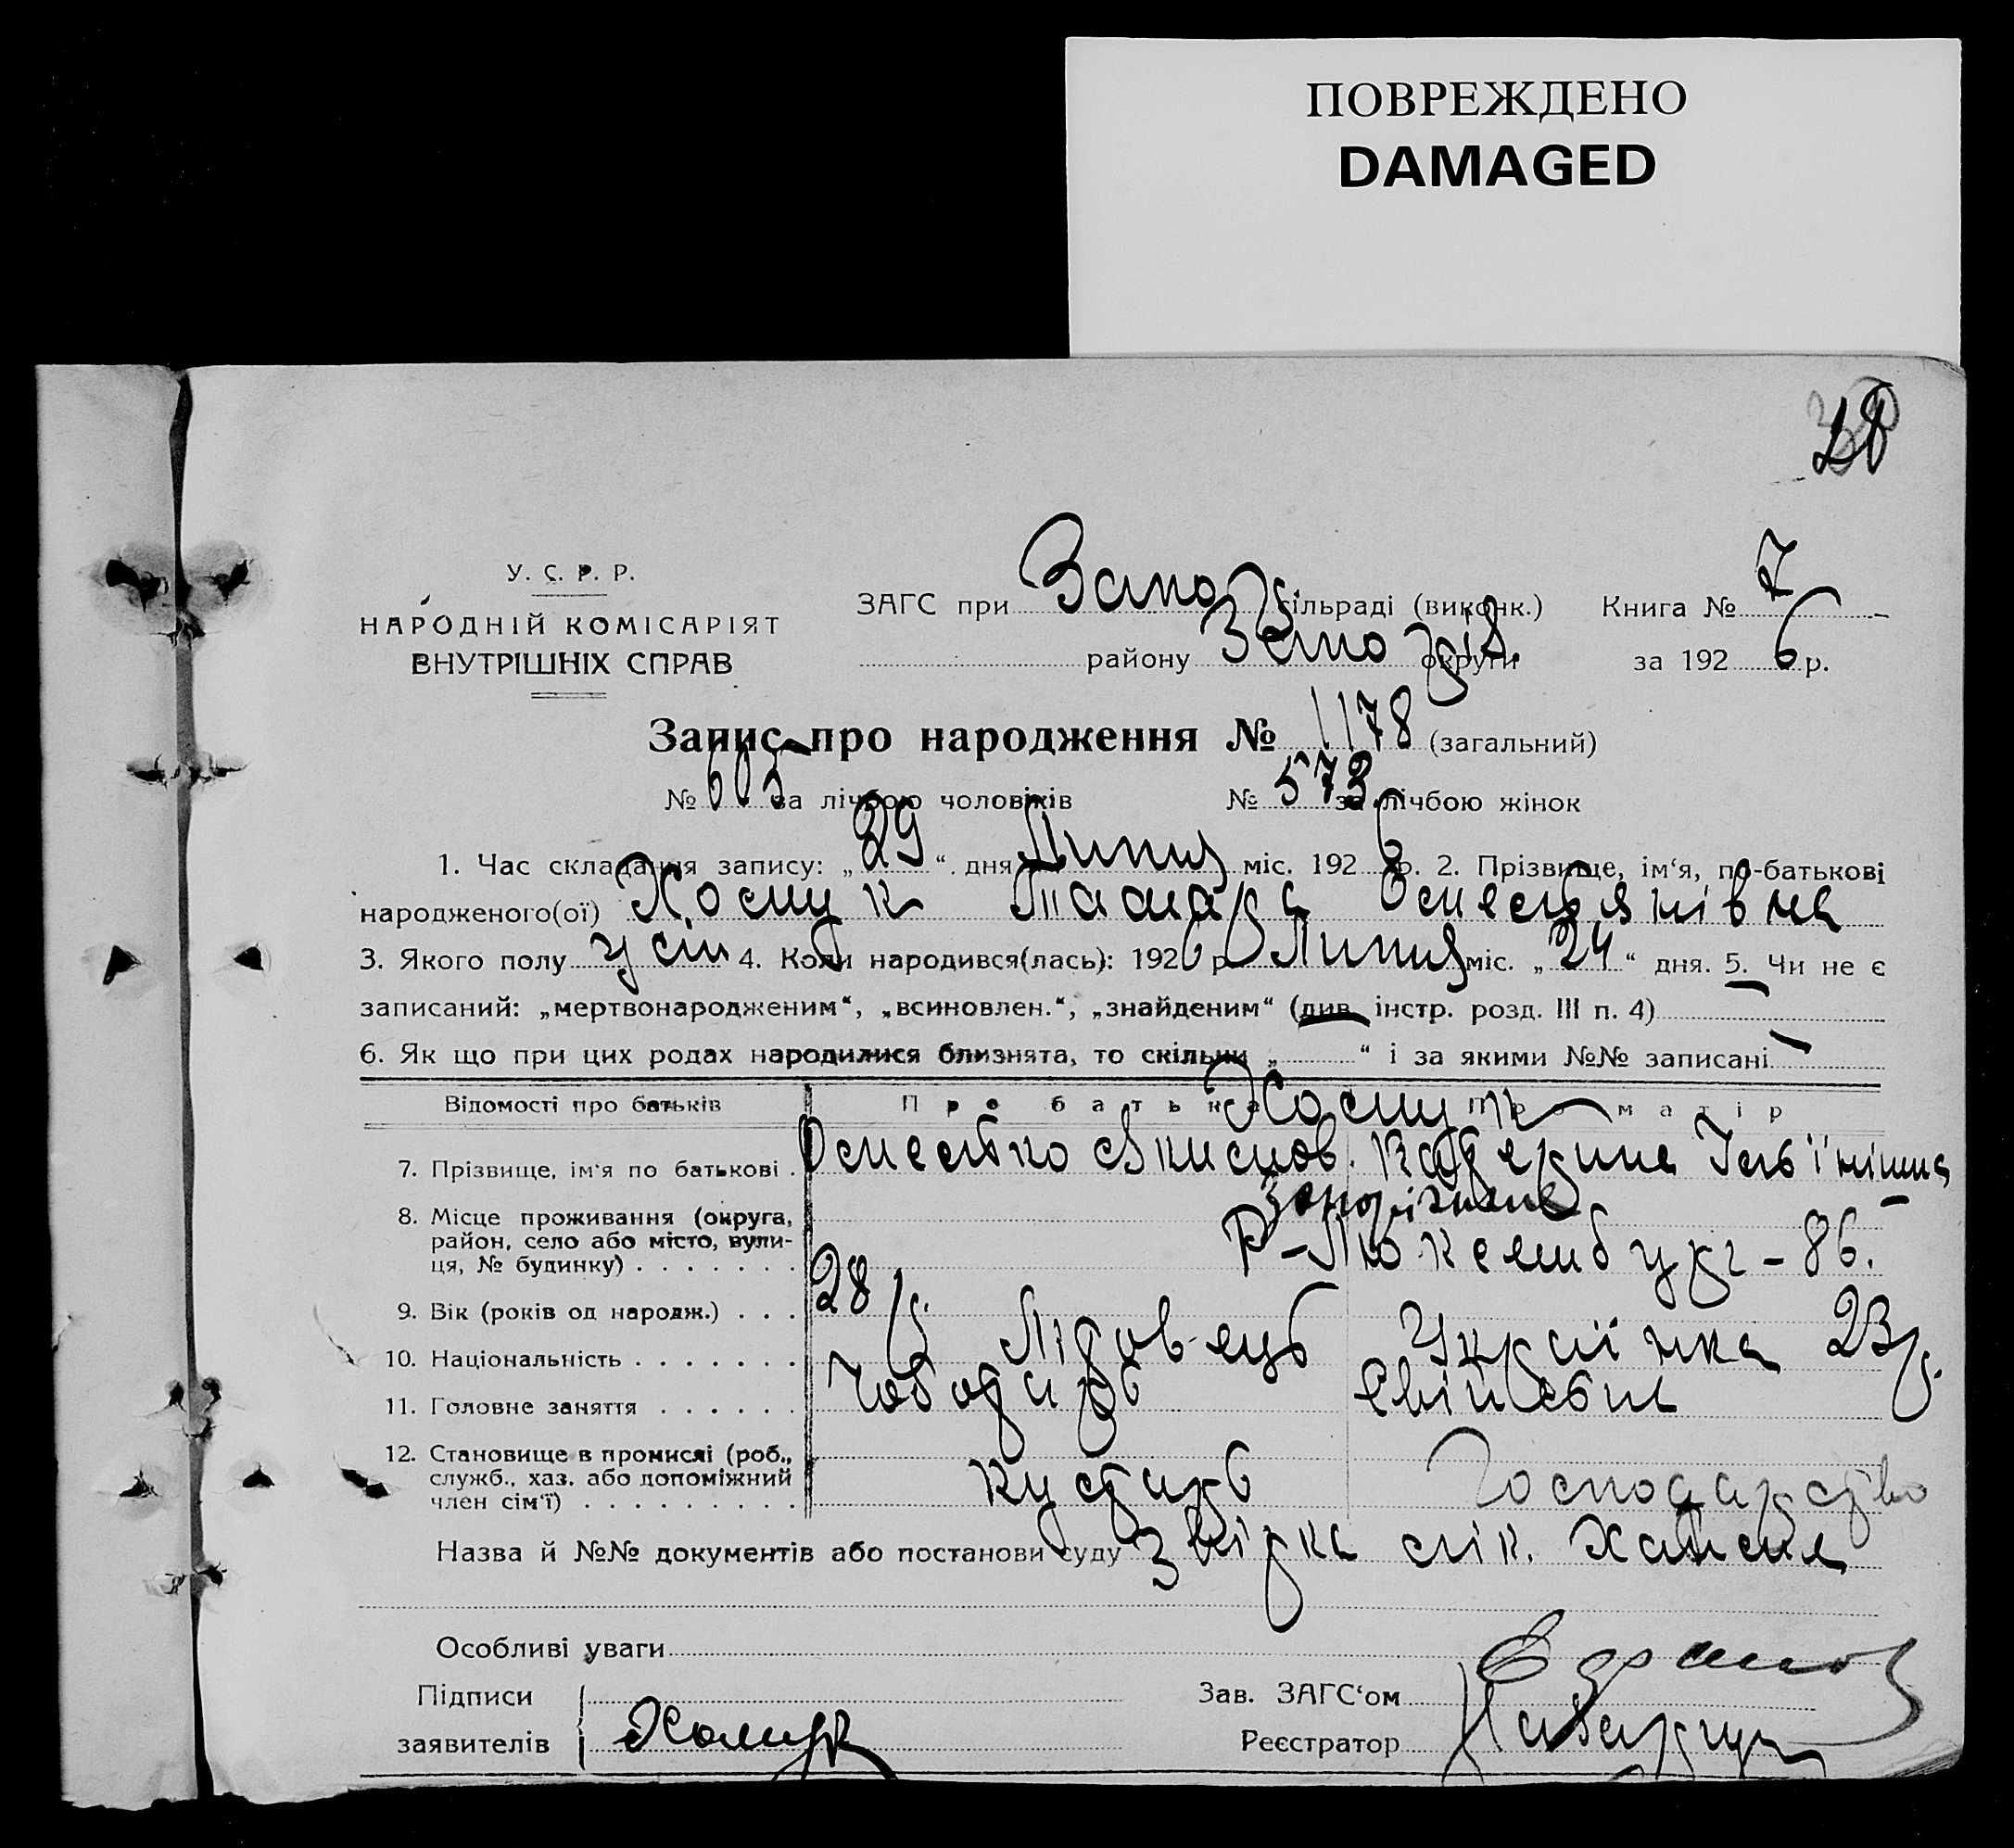 ПОВРЕЖДЕНО
DAMAGED
28
У. С. Р. Р.
НАРОДНІЙ КОМІСАРІЯТ
ВНУТРІШНІХ СПРАВ
ЗАГС при Запоріз. сільраді (виконк.) Книга № 7
району Запоріз. округи за 1926 р.
Запис про народження № 1178 (загальний)
№ 605 за лічбою чоловіків № 573 за лічбою жінок
1. Час складання запису: „29“ дня Липня міс. 1926 р. 2. Прізвище, ім‘я, по-батькові
народженого(ої) Хомук Тамара
3. Якого полу 4. Коли народився(лась): 1926 р. Липня міс. „24“ дня. 5. Чи не є
записаний: „мертвонародженим“, „всиновлен.“, „знайденим“ (див. інстр. розд. III п. 4)
6. Як що при цих родах народилися близнята, то скільки „ “ і за якими №№ записані
Відомості про батьків Про батька Про матір
Хомук
7. Прізвище, ім‘я по батькові . Катерина
8. Місце проживання (округа, район, село або місто, вулиця, № будинку) . . . . . . .
Р-Люксембург-86.
9. Вік (років од народж.) . . . 28 р. 23 р.
10. Національність . . . . . . . Українка
11. Головне заняття . . . . . . Чоботарь
12. Становище в промислі (роб., служб., хаз. або допоміжний член сім‘ї) . . . . . . . . . Кустарь Господарство
Назва й №№ документів або постанови суду
Особливі уваги
Підписи заявителів Хомук
Зав. ЗАГС‘ом
Реєстратор